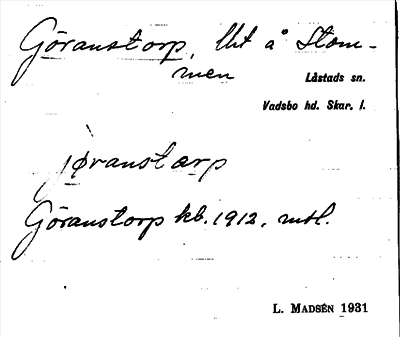 Göranstorp, lht å Stom-
men
Låstads sn.
Vadsbo hd. Skar. l.
jøranstærp
Göranstorp kb. 1912, mtl.
L. MADSÉN 1931